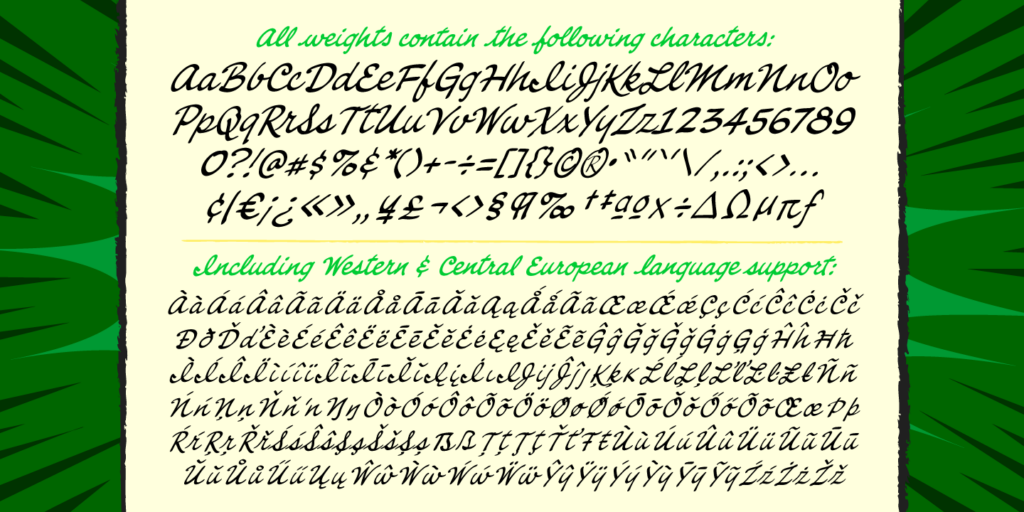 All weights contain the following characters:
AaBbCcDdEeFfGgHhIiJjKkLlMmNnOo
PpQqRrSsTtUuVvWwXxYyZz123456789
0?!@#$%&*()+-÷=[]{}©®•“”"'\/,.:;<>…
¢|€¡¿«»„¥£¬<>§¶‰†‡ªº×÷∆Ωµπƒ
Including Western & Central European language support:
ÀàÁáÂâÃãÄäÅåĀāĂăĄąǺǻÃãŒæǼǽÇçĆćĈĉĊċČč
ÐðĎďÈèÉéÊêËëĒēĔĕĖėĘęĚěẼẽĜĝĞğǦǧĠġĢģĤĥĦħ
ÌÍÎÏìíîïĨĩĪīĬĭĮįİıIJijĴĵȷĶķĸĹĺĻļĽľĿŀŁłÑñ
ŃńŅņŇňʼnŊŋÒòÓóÔôÕõÖöØøǾǿŌōŎŏŐőÕõŒœÞþ
ŔŕŖŗŘřŚśŜŝŞşŠšȘșẞßŢţȚțŤťŦŧÙùÚúÛûÜüŨũŪū
ŬŭŮůŰűŲųŴŵẀẁẂẃẄẅŶŷŸÿÝýỲỳȲȳỸỹŹźŻżŽž